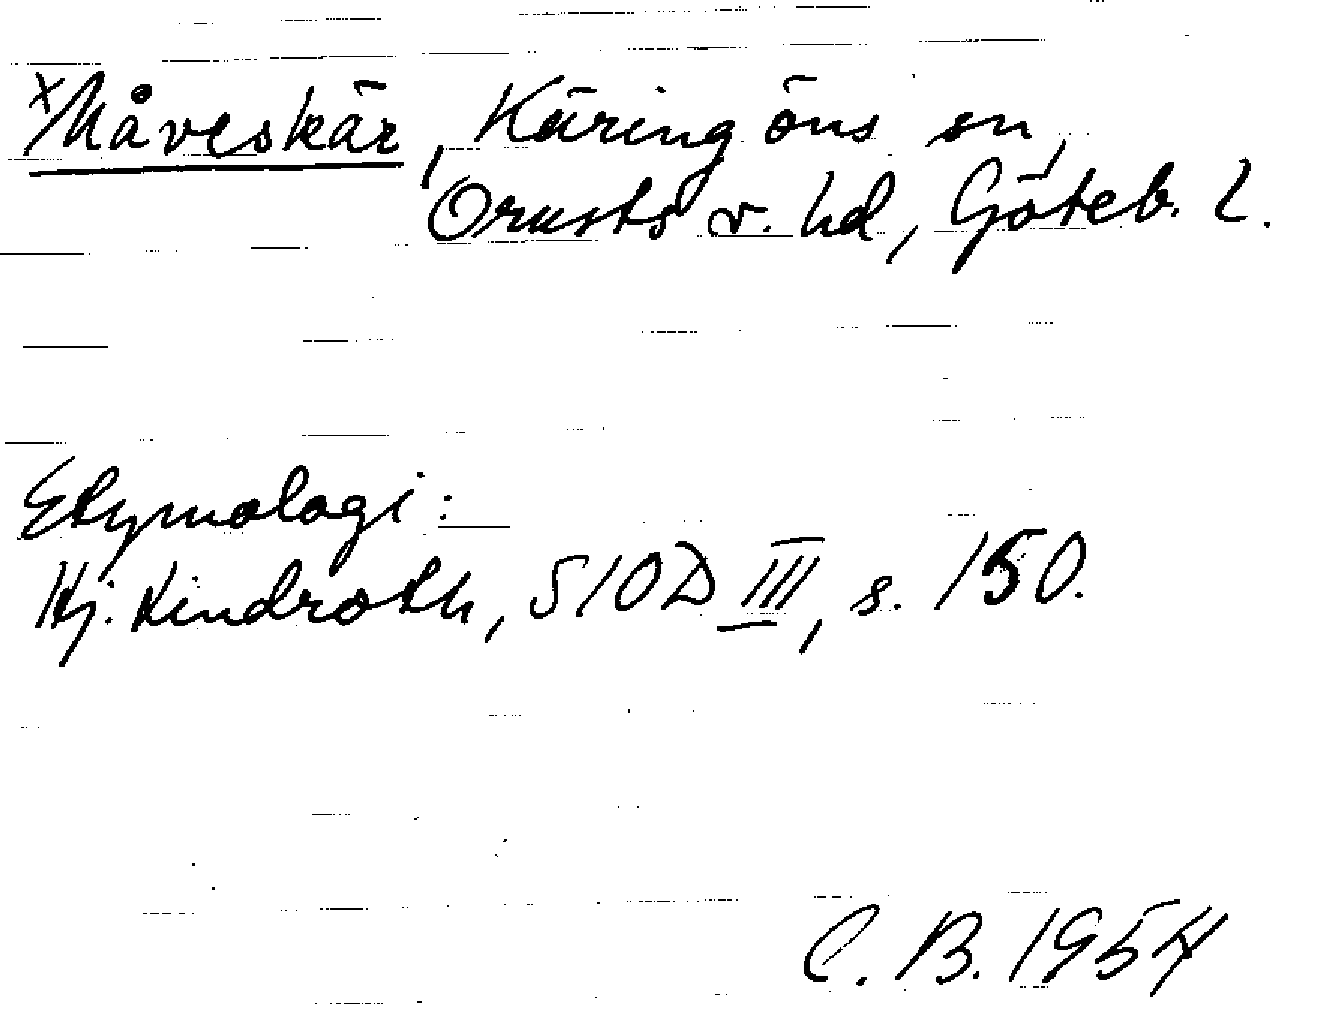 xMåveskär, Käringöns sn,
Orusts v. hd, Göteb. l.
Etymologi:
Hj. Lindroth, SIOD III, s. 150.
C. B. 1954